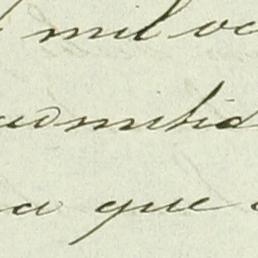 mil oc
admitid
a que